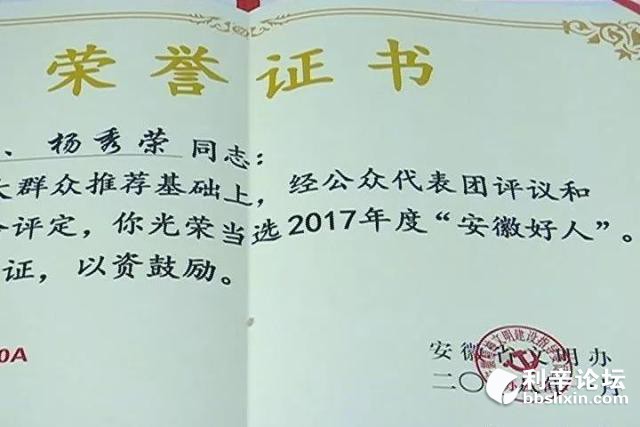 荣誉证书
、杨秀荣 同志：
大群众推荐基础上，经公众代表团评议和
评定，你光荣当选2017年度“安徽好人”。
证，以资鼓励。
0A
安徽省文明办
二〇一八年 月
利辛论坛
bbslixin.com